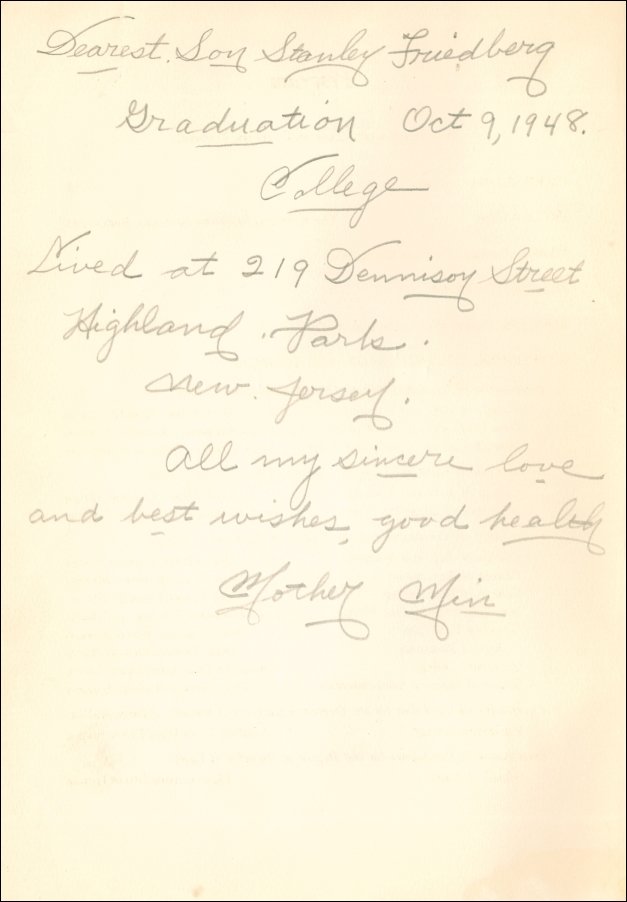 Dearest. Son Stanley Friedberg
Graduation Oct 9, 1948.
College
Lived at 219 Dennison Street
Highland. Park.
New. Jersey.
All my sincere love
and best wishes, good health
Mother Min